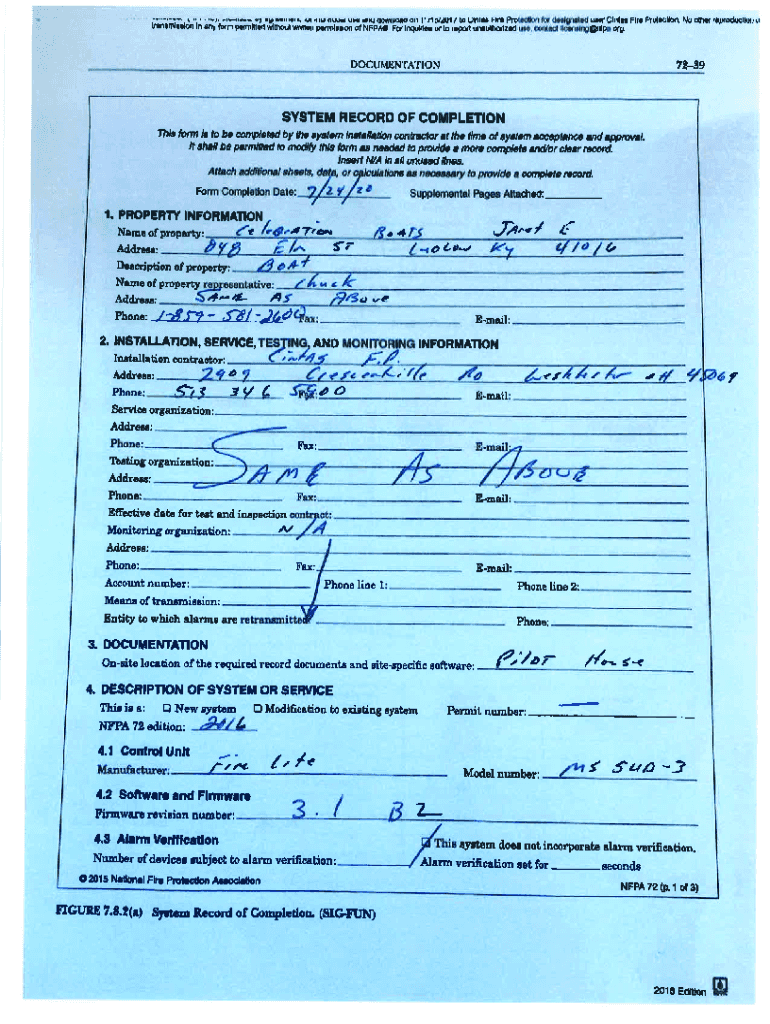 transmission in any form permitted without written permission of NFPA®. For inquiries or to report unauthorized use, contact licensing@nfpa.org.
DOCUMENTATION 72–39
SYSTEM RECORD OF COMPLETION
This form is to be completed by the system installation contractor at the time of system acceptance and approval.
It shall be permitted to modify this form as needed to provide a more complete and/or clear record.
Insert N/A in all unused lines.
Attach additional sheets, data, or calculations as necessary to provide a complete record.
Form Completion Date: 7/24/20 Supplemental Pages Attached:
1. PROPERTY INFORMATION
Name of property: Celebration Boats Janet E
Address: 848 Elm ST Ludlow Ky 41016
Description of property: Boat
Name of property representative: Chuck
Address: Same As Above
Phone: 1-859-581-2600 Fax: E-mail:
2. INSTALLATION, SERVICE, TESTING, AND MONITORING INFORMATION
Installation contractor: Cintas F.P.
Address: 2909 Crescentville Rd Westchester OH 45069
Phone: 513 346 5900 Fax: E-mail:
Service organization:
Address:
Phone: Fax: E-mail:
Testing organization:
Address: SAME AS ABOVE
Phone: Fax: E-mail:
Effective date for test and inspection contract:
Monitoring organization: N/A
Address:
Phone: Fax: E-mail:
Account number: Phone line 1: Phone line 2:
Means of transmission:
Entity to which alarms are retransmitted: Phone:
3. DOCUMENTATION
On-site location of the required record documents and site-specific software: Pilot House
4. DESCRIPTION OF SYSTEM OR SERVICE
This is a: ❑ New system ❑ Modification to existing system Permit number: —
NFPA 72 edition: 2016
4.1 Control Unit
Manufacturer: Fire Lite Model number: MS 5UD-3
4.2 Software and Firmware
Firmware revision number: 3.1 B2
4.3 Alarm Verification ❑ This system does not incorporate alarm verification.
Number of devices subject to alarm verification: Alarm verification set for seconds
© 2015 National Fire Protection Association NFPA 72 (p. 1 of 3)
FIGURE 7.8.2(a) System Record of Completion. (SIG-FUN)
2016 Edition